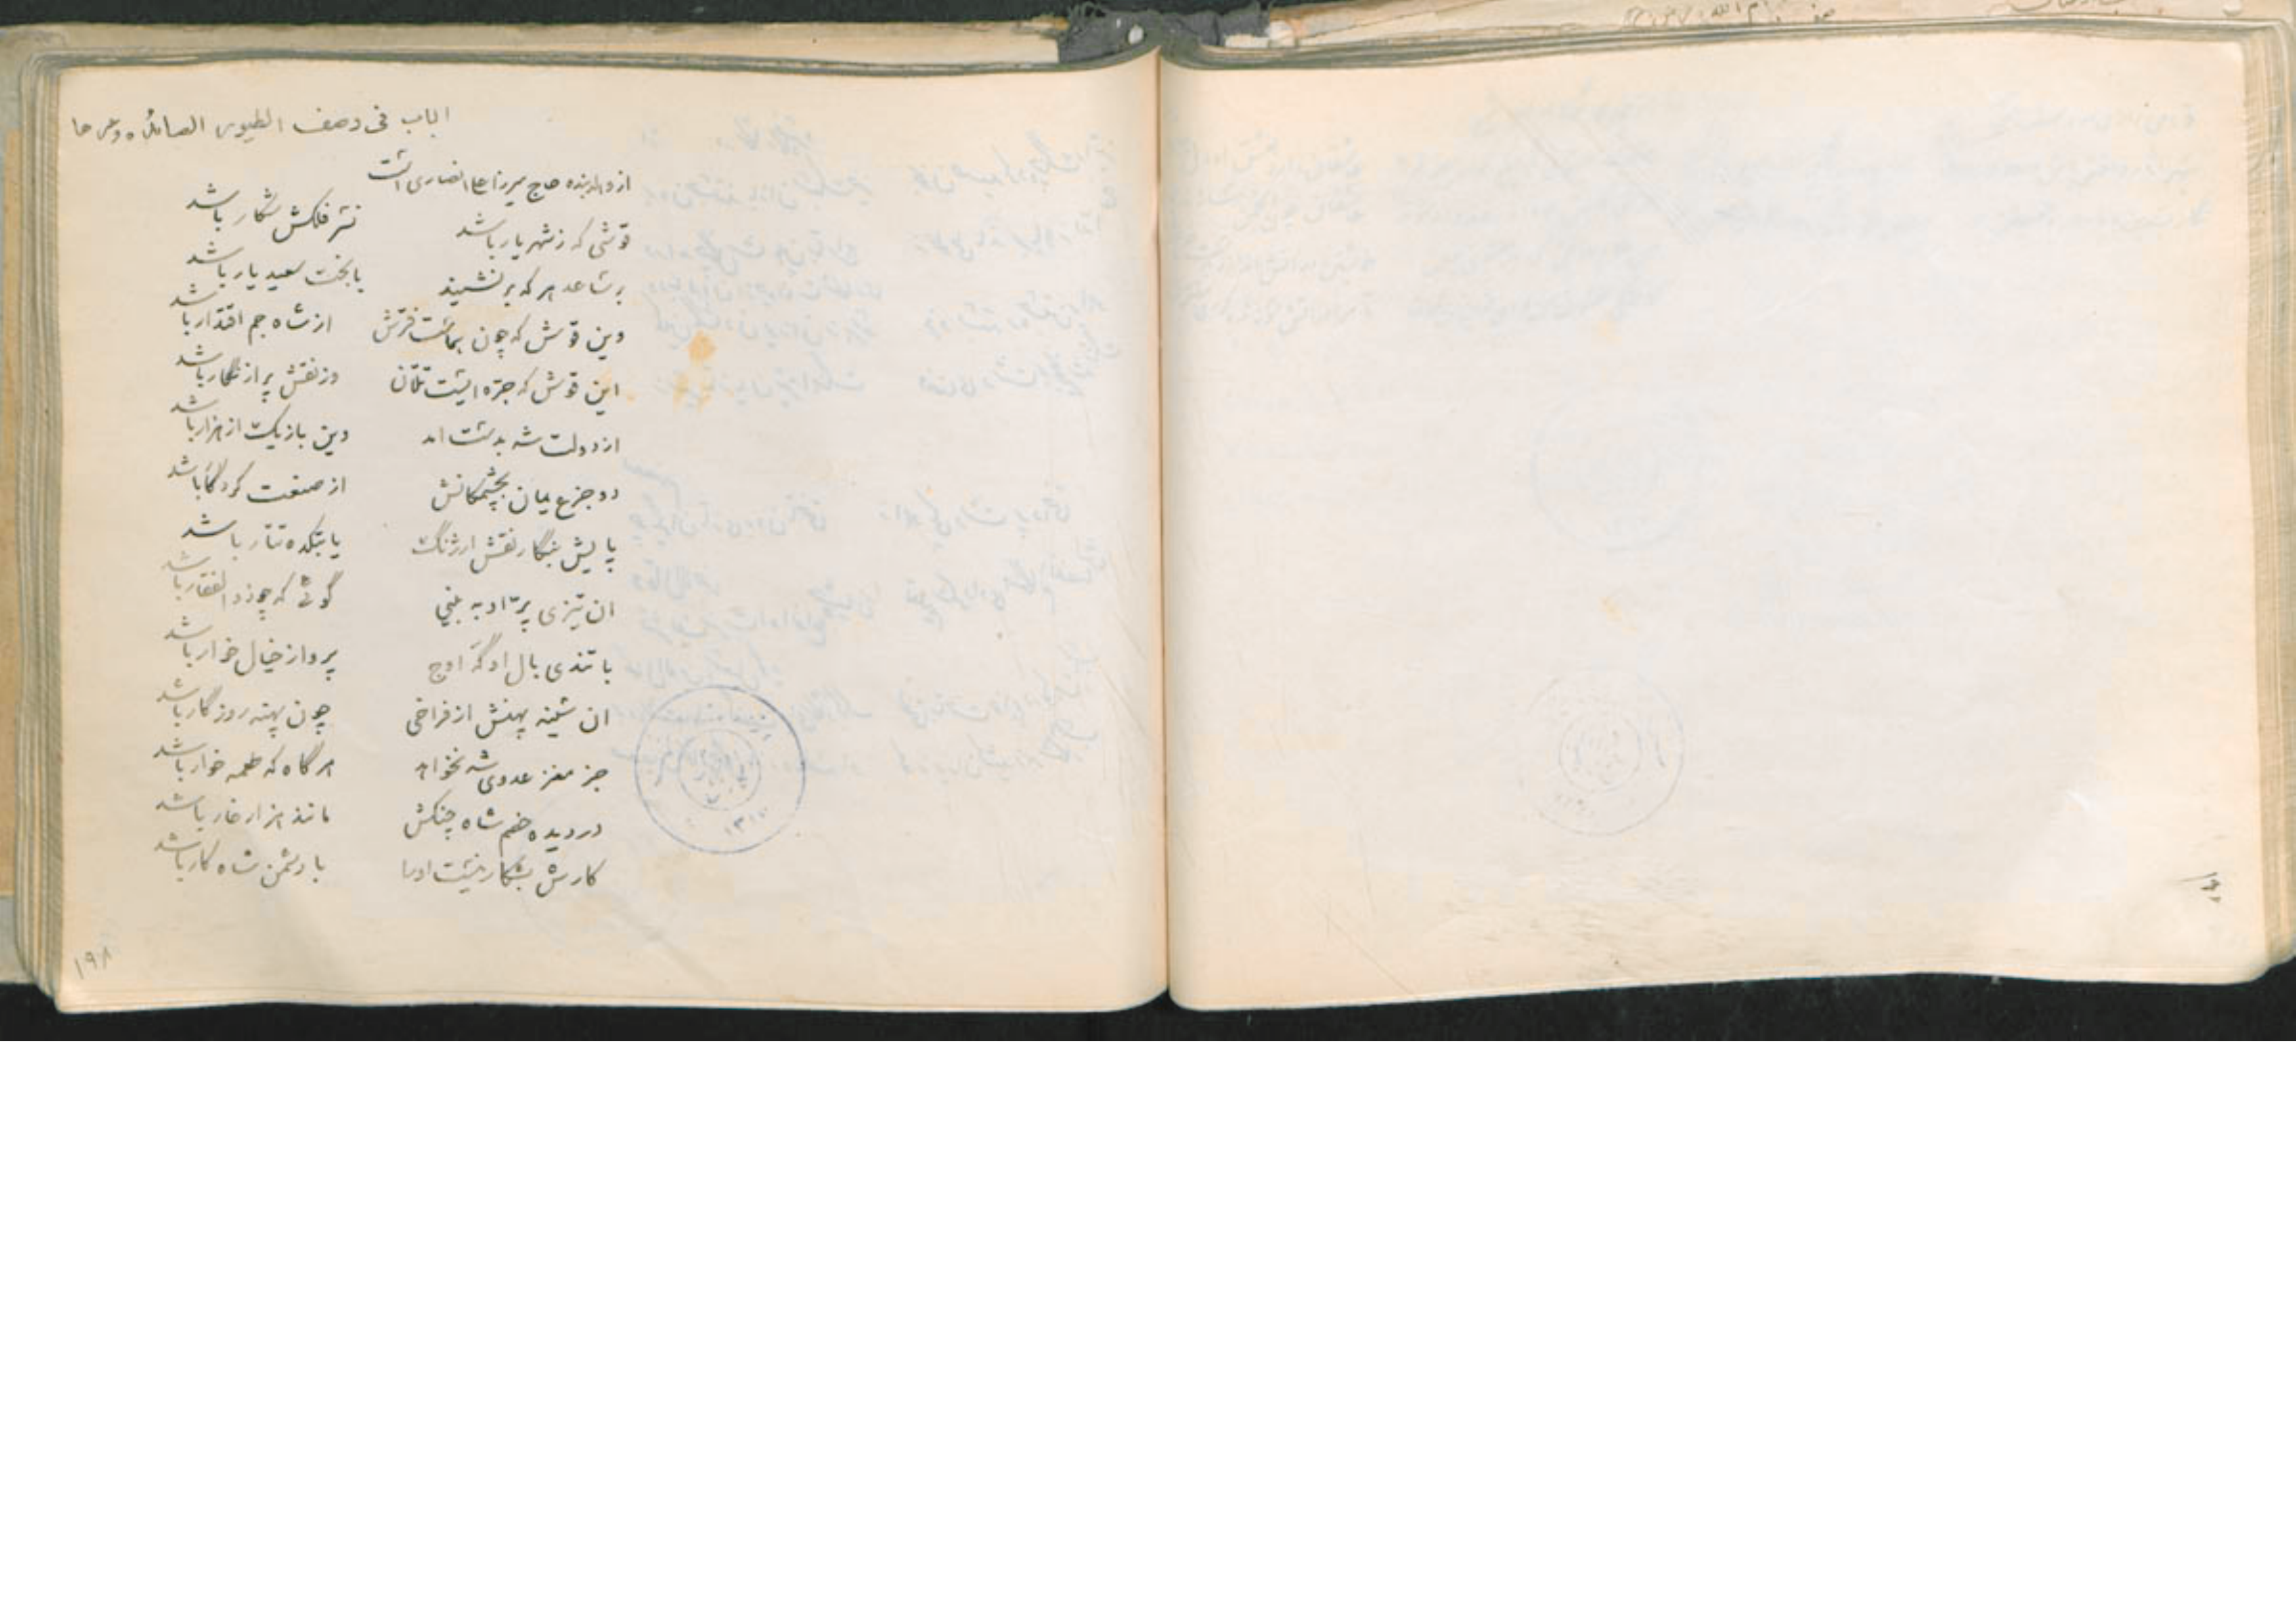 الباب فی وصف الطیور الصائده و غیرها
از والد بنده حاج میرزا علی انصاری است
قوشی که ز شهریار باشد نسر فلکش شکار باشد
بر ساعد هر که بر نشیند با بخت سعید یار باشد
وین قوش که چون بماست فرّش از شاه جم اقتدار باشد
این قوش که جرّه ایست تلان وز نقش پر از نگار باشد
از دولت شه بدست امد وین باز یکت از هزار باشد
دو جزع یمان بچشمکانش از صنعت کردگار باشد
پایش بنگار نقش ارژنگ یا بتکده تتار باشد
ان تیزی پرّ او به بینی گوئی که چو ذوالفقار باشد
با تندی بال او گه اوج پرواز خیال خوار باشد
ان سینه پهنش از فراخی چون پهنه روزگار باشد
جز مغز عدوی شه نخواهد هر گاه که طعمه خوار باشد
در دیده خصم شاه چنگش مانند هزار خار باشد
کارش بشکار نیست اوما با دشمن شاه کار باشد
۱۹۸